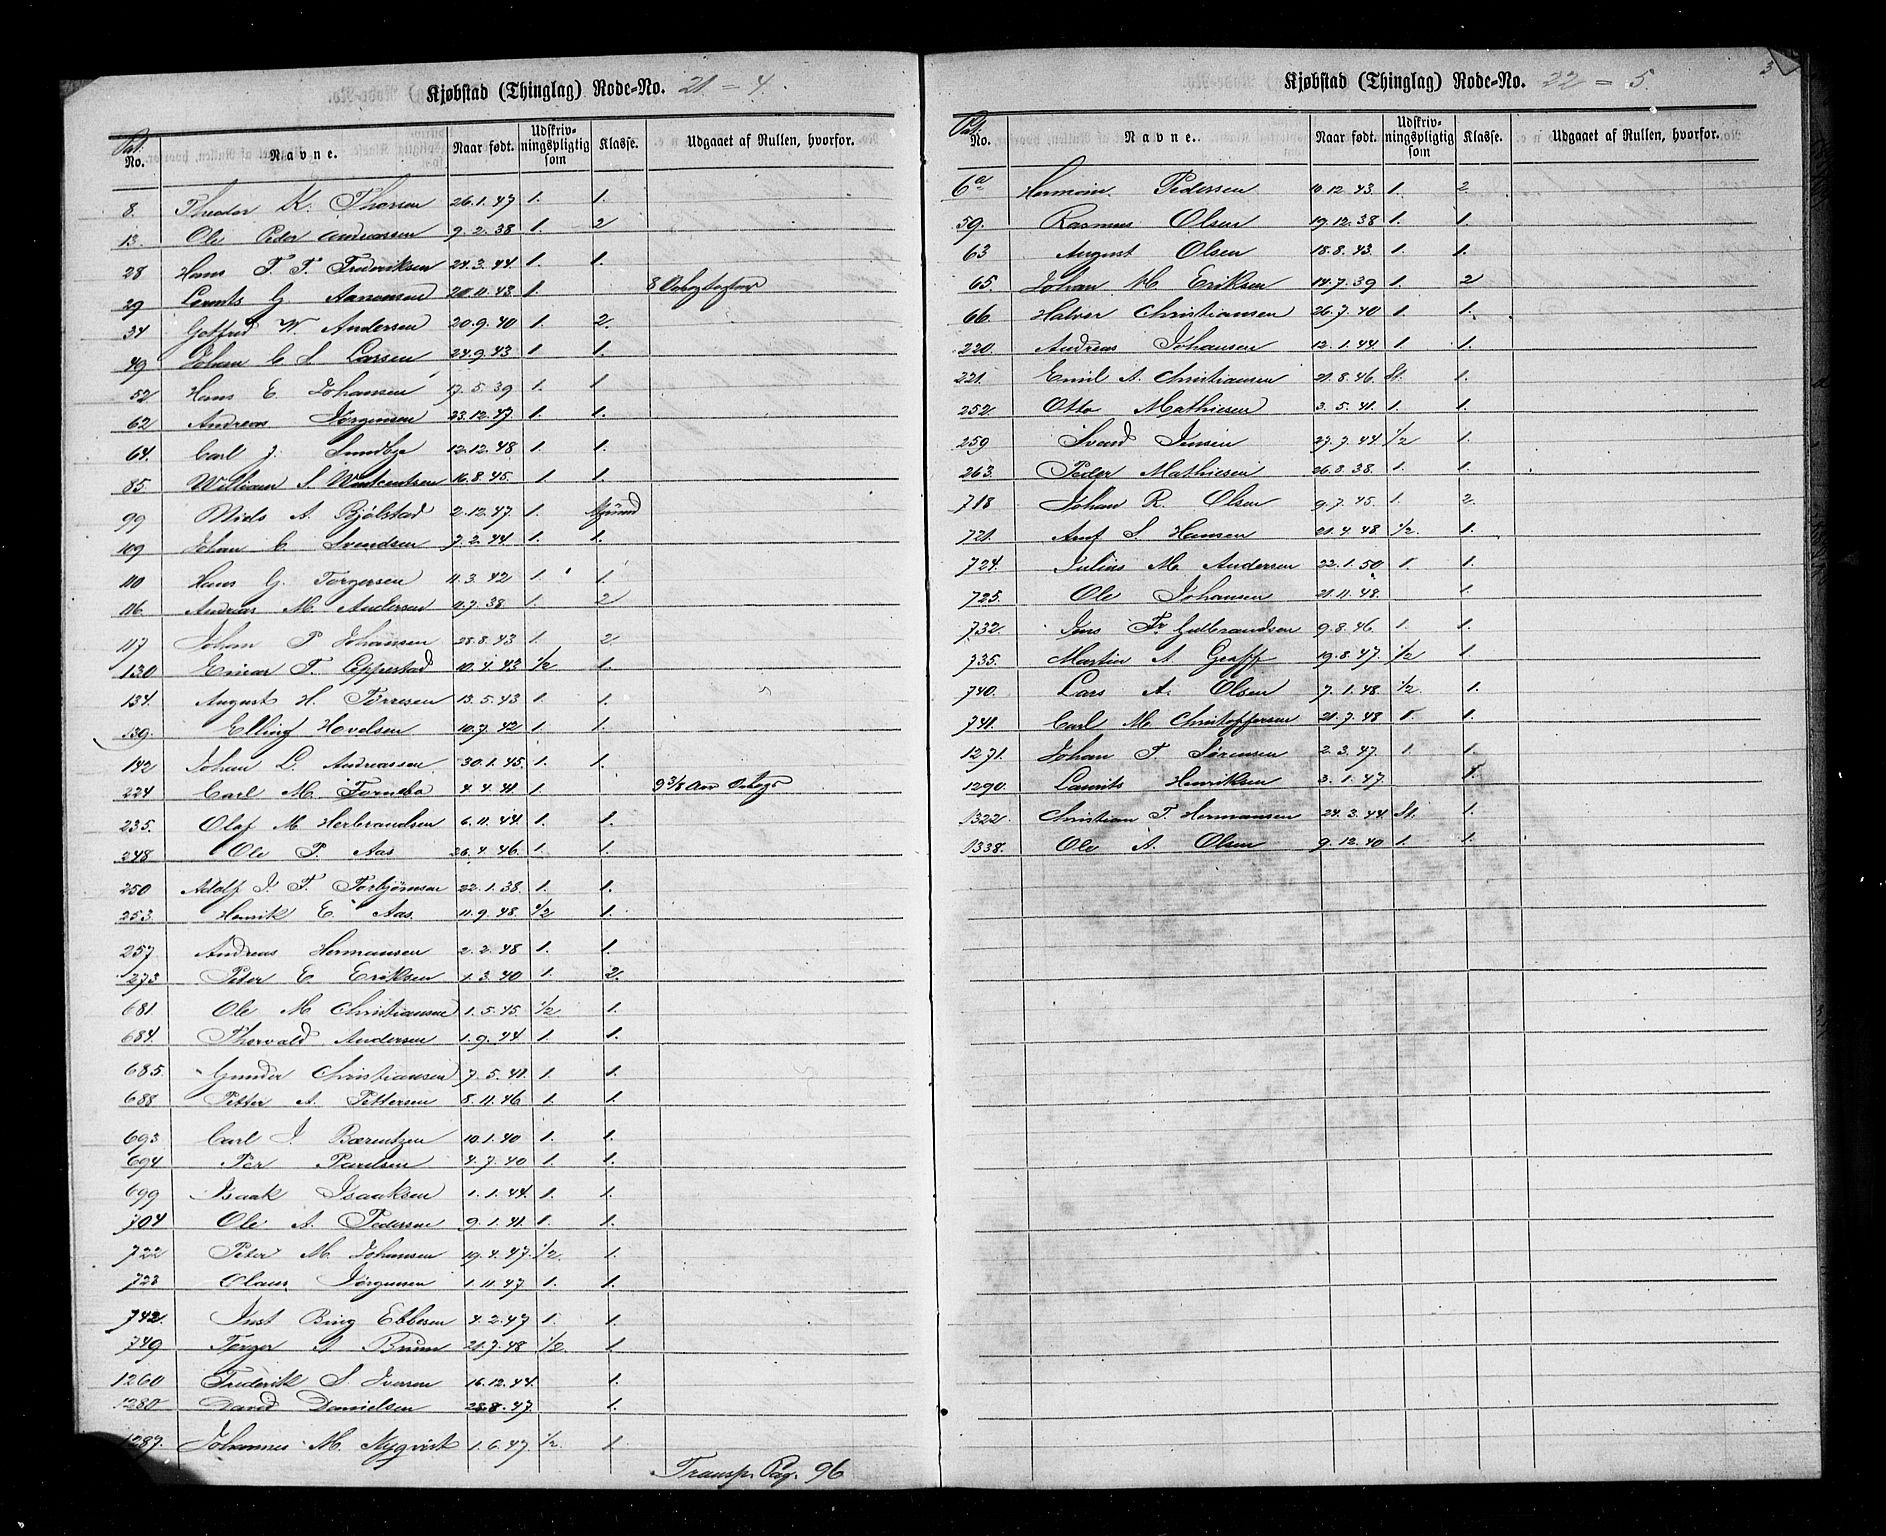 3
Kjøbstad (Thinglag) Rode-No. 21 = 4.
Pat. No. Navne. Naar født. Udskrivningspligtig som Klasse. Udgaaet af Rullen, hvorfor.
8. Theodor K. Thorsen 26.1.47 1. 1.
13. Ole Peder Andreassen 9.2.38 1. 2
28 Hans T. T. Frederiksen 24.3.44 1. 1.
29 G Aanonsen 20.11.43 1
34 Gotfred W. Andersen 20.9.40 1. 2.
49 Johan C S Larsen 24.9.43 1. 1.
52 Hans E. Johansen 17.5.39 1. 1
62 Andreas Jørgensen 23.12.47 1. 1.
64. Carl J. Lundbye 12.12.48 1. 1.
85. William S. Wintcentsen 16.8.45. 1. 1.
99 Niels A. Bjølstad 2.12.47. 1.
109 Johan C. Svendsen 7.2.44. 1. 1.
110 Hans G. Torgersen 11.3.42 1. 1.
116 Andreas M. Andersen 11.7.38. 1. 2
117 Johan P Johansen 28.8.43 1. 2
130 Einar T. Eppestad 10.4.43 1/2 1.
134. August H. Torresen 13.5.43 1. 1.
139. Elling Hovelsen 10.7.42 1. 1.
142 Johan L. Andreassen 30.1.45. 1. 1.
224 Carl M. Fornebo 4.4.41 1
235. Olaf M. Herbrandsen 6.11.44. 1. 1.
248 Ole P. Aas 26.4.46. 1. 1.
250 Adolf I. T. Torbjørnsen 22.1.38. 1. 1.
253. Henrik E. Aas. 11.9.48. 1/2 1.
257 Andreas Hermansen 2.2.48 1. 1.
273 Peter E. Eriksen 1.3.40 1. 2.
681. Ole M Christiansen 1.5.45. 1/2 1.
684. Thorvald Andersen 1.9.44 1. 1.
685. Gunder Christiansen 7.5.41. 1. 1.
688 Petter A. Pettersen 8.11.46 1. 1.
693 Carl J. Bærentzen 10.1.40 1. 1.
694 Per Paulsen 4.7.40 1. 1.
699 Isaak Isaaksen 1.1.44. 1. 1.
704 Ole A. Pedersen 9.1.41. 1. 1.
722 Peter M. Johansen 19.4.47. 1/2 1.
723 Olaus Jørgensen 1.11.47 1. 1.
742. Just Bing Ebbesen 4.2.47 1. 1.
749 Torger A. Bruun 21.7.48 1/2 1
1260 Frederik S Iversen 16.12.44. 1.
1280 David Danielsen 28.8.47 1.
1287. Johannes M. Nyqvist 1.6.47. 1/2. 1.
Transp. Pag. 96
Kjøbstad (Thinglag) Rode-No. 22 = 5.
Pat. No. Navne. Naar født. Udskrivningspligtig som Klasse. Udgaaet af Rullen, hvorfor.
6a Herman Pedersen 10.12.43. 1. 2.
59. Rasmus Olsen 19.12.38 1. 1.
63 August Olsen 18.8.43. 1. 1.
65. Johan M. Eriksen 14.7.39 1. 2
66. Halvor Christiansen 26.7.40 1. 1.
220. Andreas Johansen 12.1.44. 1. 1.
221. Emil A. Christiansen 21.8.46. St. 1.
252 Otto Mathiesen 3.5.41. 1. 1.
259 Svend Jensen 27.7.44 1/2 1.
263. Peder Mathiesen 26.3.38. 1. 1.
718 Johan R. Olsen 9.7.45. 1. 2.
721. Anf. S. Hansen 21.4.48 1/2. 1.
724. Julius M. Andersen 22.1.50 1 1.
725. Ole Johansen 21.11.48. 1.
732. Jens Fr. Gulbrandsen 9.8.46. 1. 1.
735. Martin A. Graff 19.8.47. 1/2 1.
740. Lars A. Olsen 7.1.48. 1/2 1.
741. Carl M. Christoffersen 21.7.48 1. 1.
1271. Johan T. Sørensen 2.3.47. 1. 1.
1290. Laurits Henriksen 3.1.47. 1.
1322. Christian T. Hermansen 24.3.44 St. 1.
1338. Ole A. Olsen 9.12.40 1. 1.